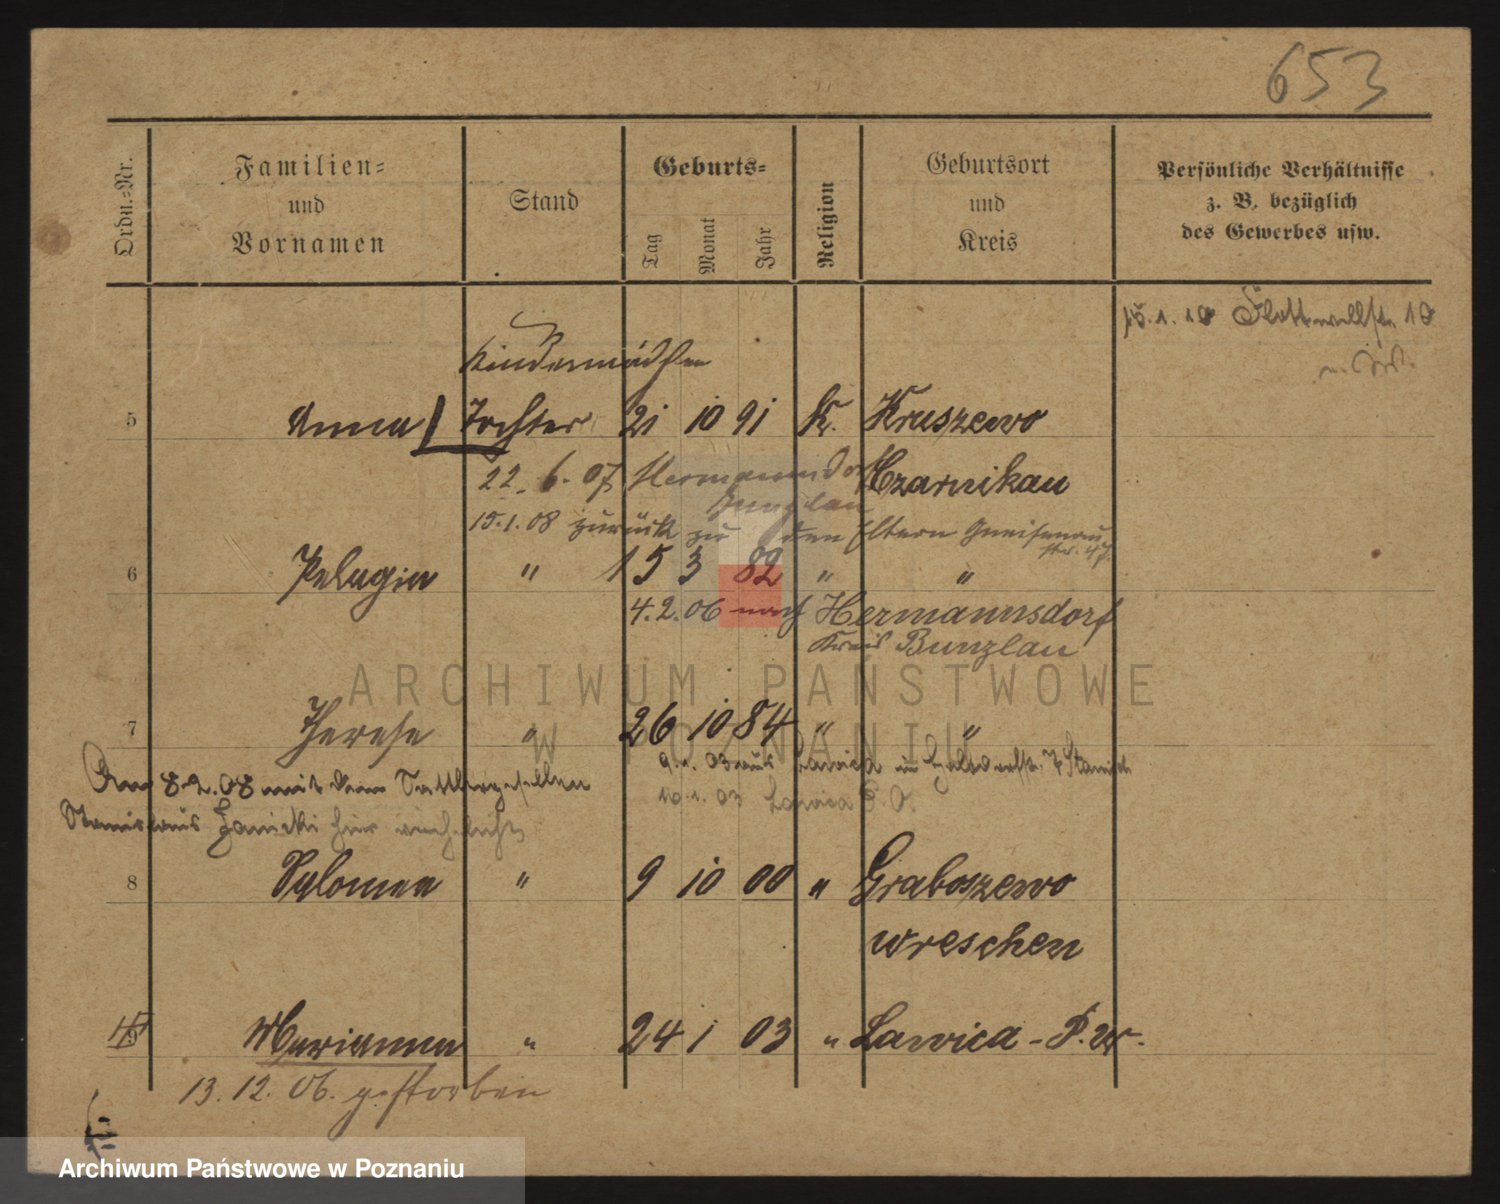 653
Ordn.-Nr.
Familien-
und
Vornamen
Stand
Geburts-
Tag
Monat
Jahr
Religion
Geburtsort
und
Kreis
Persönliche Verhältnisse
z. B. bezüglich
des Gewerbes usw.
15.1.10 Flottwellstr. 10
Kindermädchen
5 Anna Tochter 21 10 91 K. Kruszewo
22.6.07 Hermannsdorf Czarnikau
Bunzlau
15.1.08 zurück zu den Eltern Gneisenau
str. 47.
6 Pelagia " 15 3 82 " "
4.2.06 nach Hermannsdorf
Kreis Bunzlau
7 Therese " 26 10 84 " "
9.1.03 aus Lawica
10.1.03 Lawica P. O.
Am 8.2.08 mit dem Sattlergesellen
Stanislaus Janicki hier verehelicht
8 Salomea " 9 10 00 " Graboszewo
Wreschen
9 Marianna " 24 1 03 " Lawica - P. W.
13.12.06. gestorben
ARCHIWUM PAŃSTWOWE
W POZNANIU
Archiwum Państwowe w Poznaniu